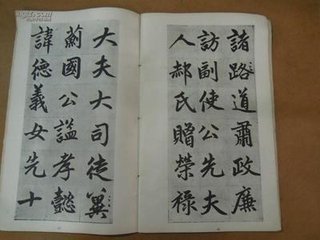 諸路道肅政廉
訪副使公先夫
人郝氏贈榮祿
大夫大司徒冀
薊國公謚孝懿
諱德義女先十